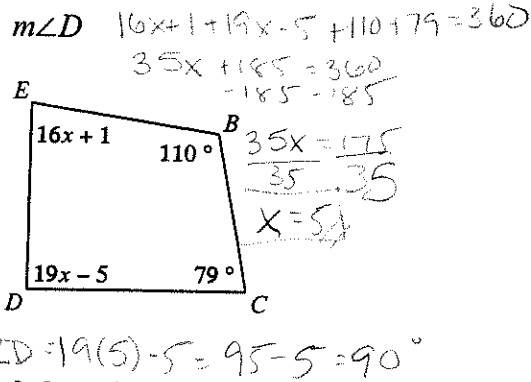 m∠D 16x+1+19x-5+110+79=360
35x+185=360
-185 -185
E
B
16x + 1
110°
35x = 175
35 35
x=5
19x − 5
79°
D
C
∠D=19(5)-5=95-5=90°